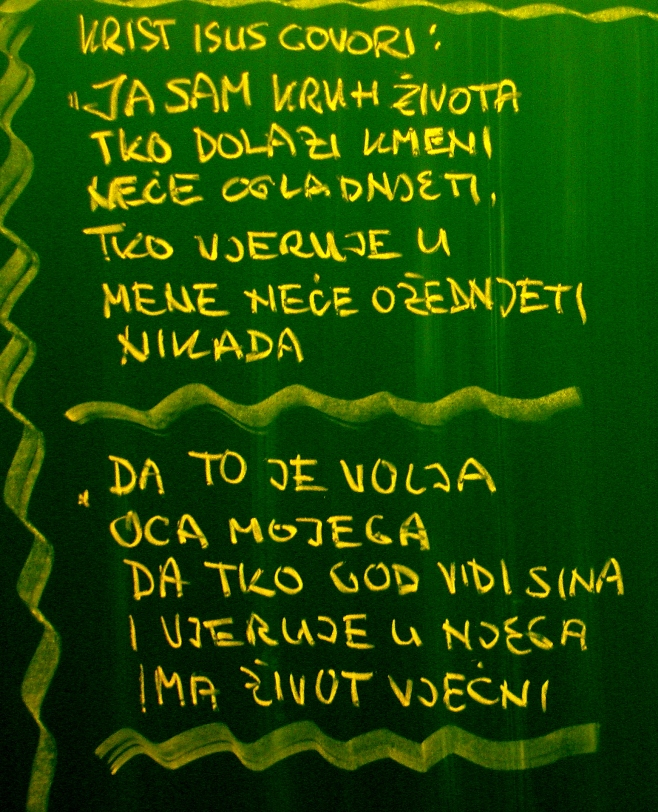 KRIST ISUS GOVORI:
"JA SAM KRUH ŽIVOTA
TKO DOLAZI K MENI
NEĆE OGLADNJETI,
TKO VJERUJE U
MENE NEĆE OŽEDNJETI
NIKADA
DA TO JE VOLJA
OCA MOJEGA
DA TKO GOD VIDI SINA
I VJERUJE U NJEGA
IMA ŽIVOT VJEČNI